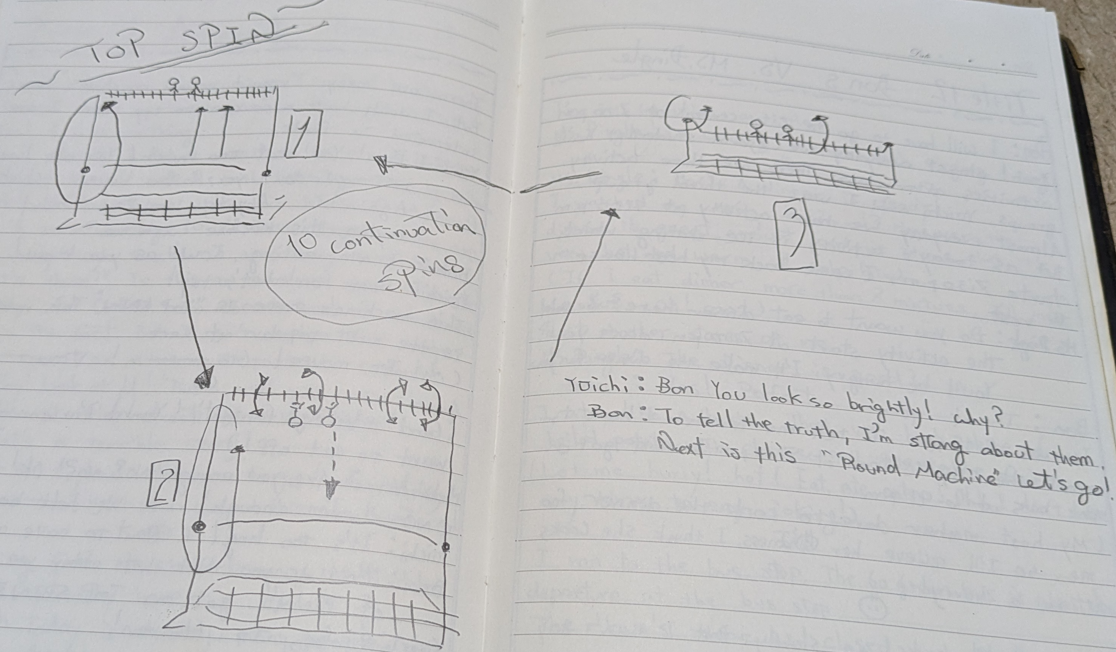 TOP SPIN
1
10 continuation
spins
2
3
Yoichi: Bon You look so brightly! why?
Bon: To tell the truth, I'm strong about them.
Next is this "Round Machine" Let's go!